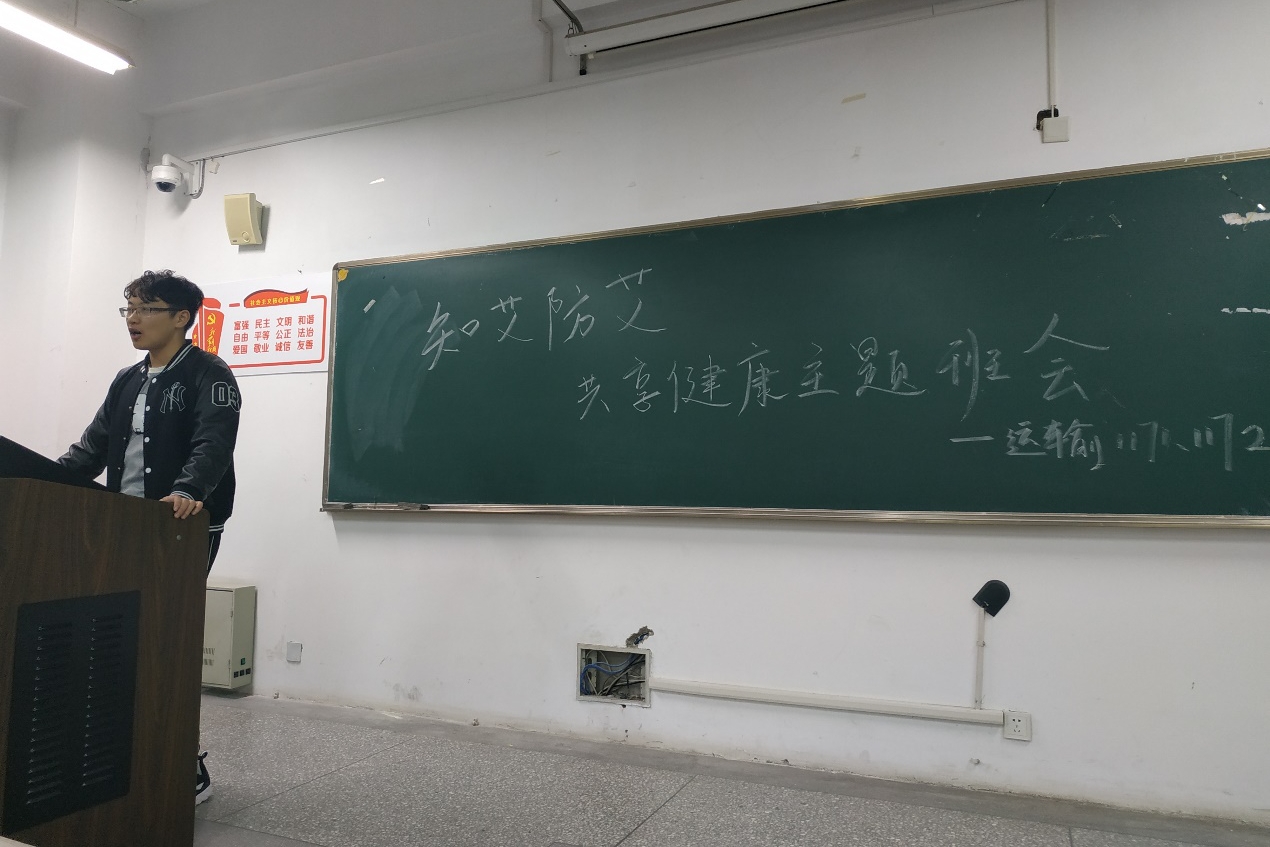 社会主义核心价值观
富强 民主 文明 和谐
自由 平等 公正 法治
爱国 敬业 诚信 友善
NY
03
知艾防艾
共享健康主题班会
—运输1171、1172